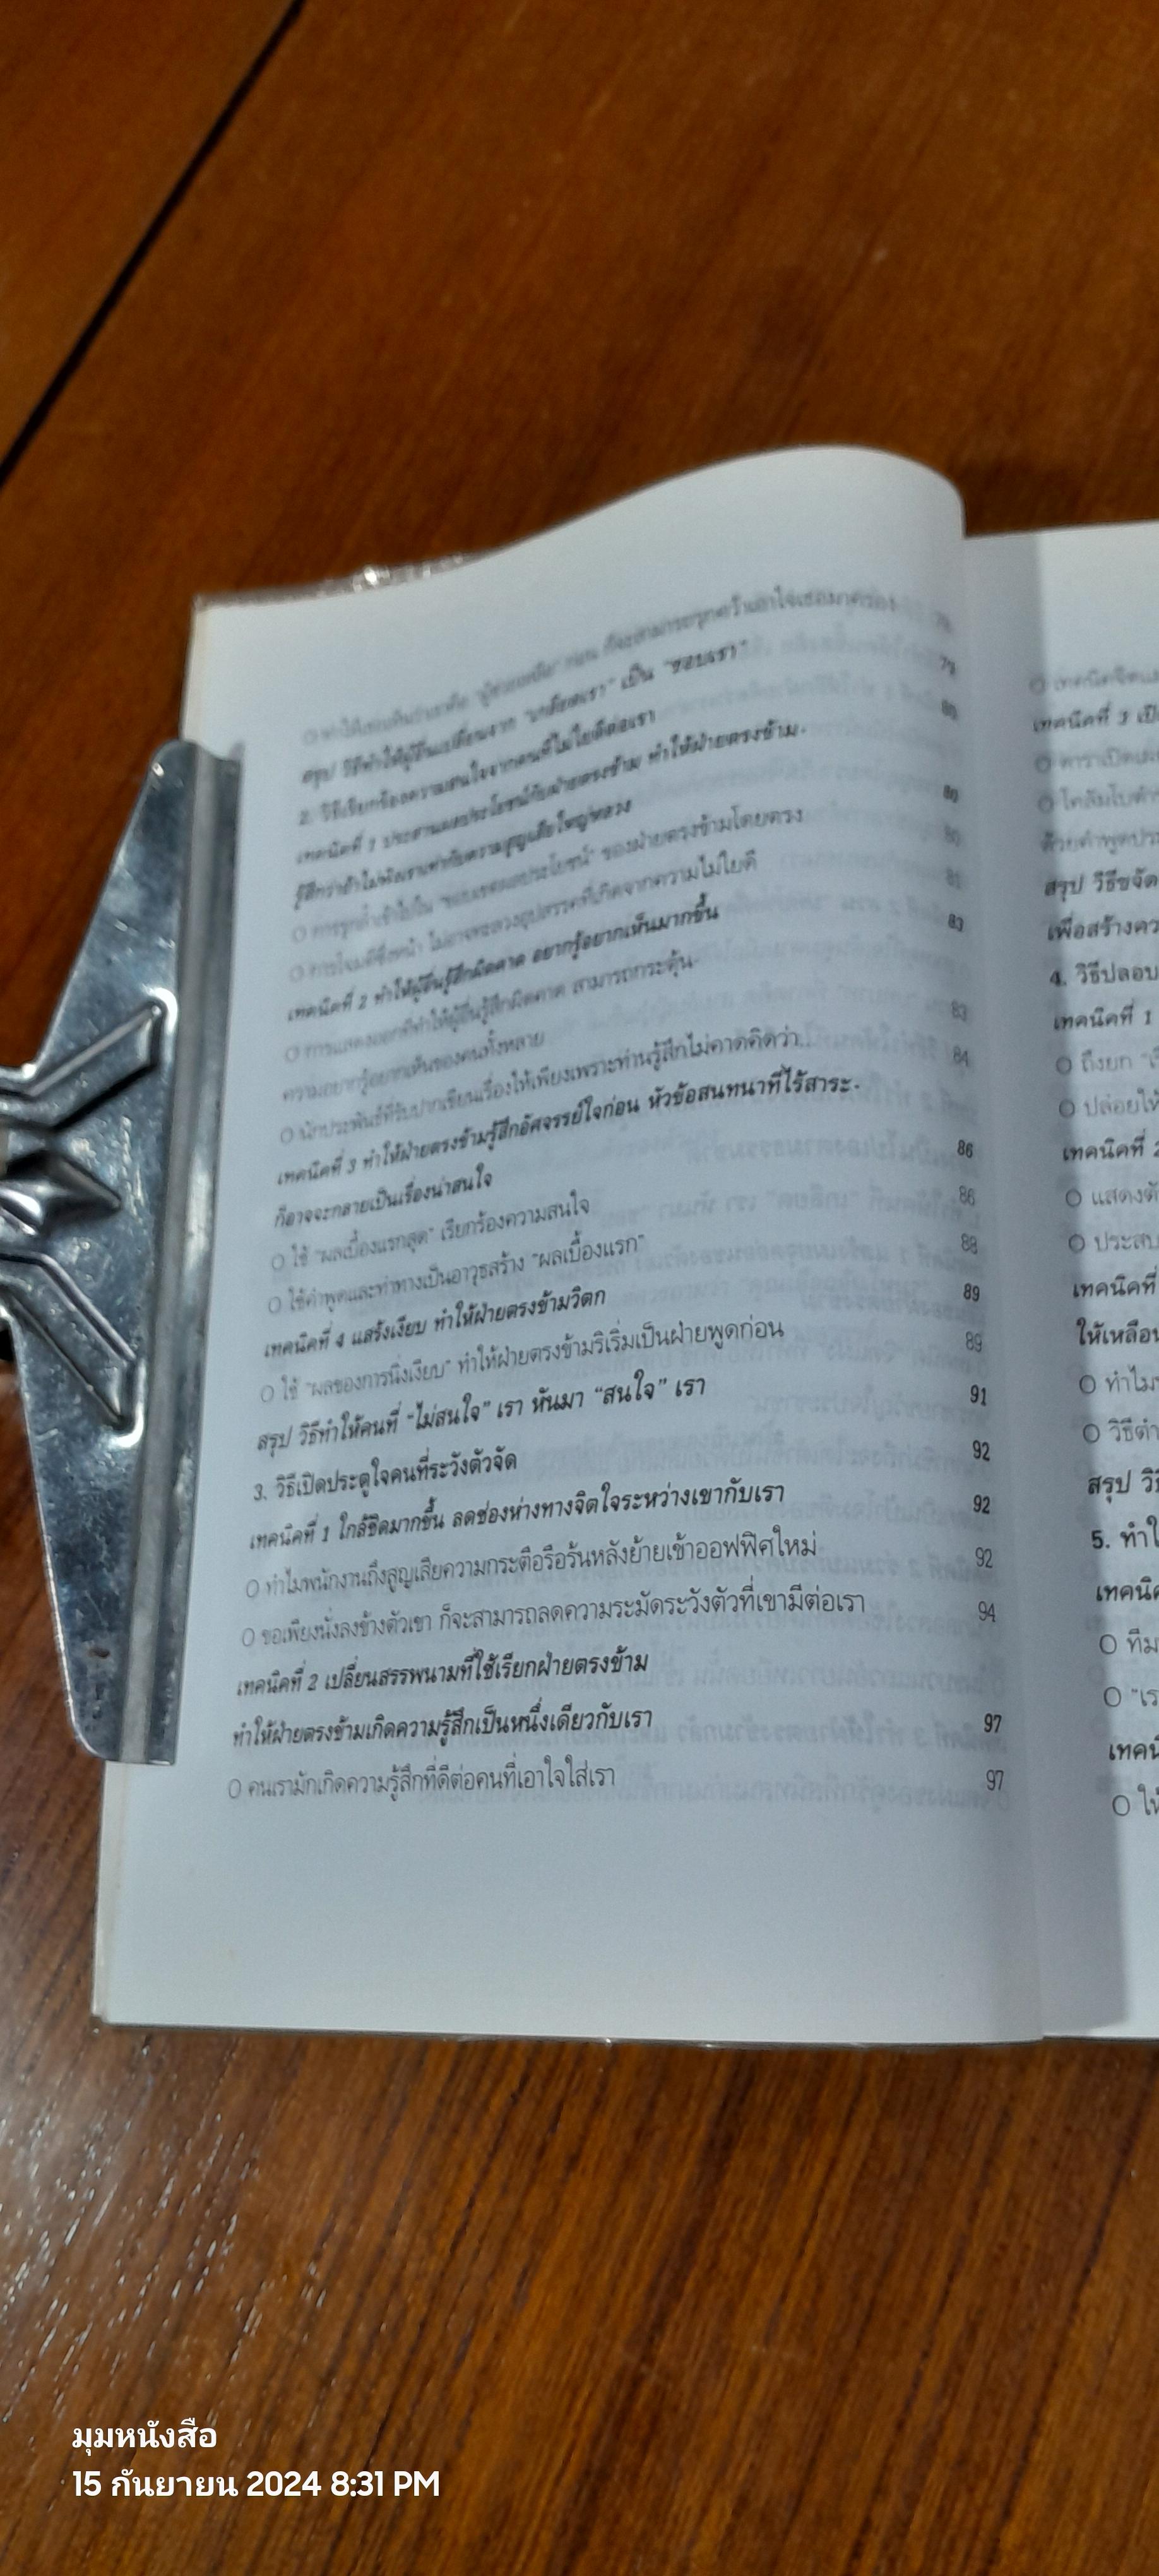 สรุป วิธีทำให้ผู้อื่นเปลี่ยนจาก "เกลียดเรา" เป็น "ชอบเรา" 79
2. วิธีเรียกร้องความสนใจจากคนที่ไม่ใยดีต่อเรา 80
เทคนิคที่ 1 ประสานผลประโยชน์กับฝ่ายตรงข้าม ทำให้ฝ่ายตรงข้าม-
รู้สึกว่าถ้าไม่ฟังเราเท่ากับความสูญเสียใหญ่หลวง 80
O การรุกล้ำเข้าไปใน "ขอบเขตผลประโยชน์" ของฝ่ายตรงข้ามโดยตรง 80
O การโจมตีซึ่งหน้า ไม่อาจทะลวงอุปสรรคที่เกิดจากความไม่ใยดี 81
เทคนิคที่ 2 ทำให้ผู้อื่นรู้สึกผิดคาด อยากรู้อยากเห็นมากขึ้น 83
O การแสดงออกที่ทำให้ผู้อื่นรู้สึกผิดคาด สามารถกระตุ้น-
ความอยากรู้อยากเห็นของคนทั้งหลาย 83
O นักประพันธ์ที่รับปากเขียนเรื่องให้เพียงเพราะท่านรู้สึกไม่คาดคิดว่า... 84
เทคนิคที่ 3 ทำให้ฝ่ายตรงข้ามรู้สึกอัศจรรย์ใจก่อน หัวข้อสนทนาที่ไร้สาระ-
ก็อาจจะกลายเป็นเรื่องน่าสนใจ 86
O ใช้ "ผลเบื้องแรกสุด" เรียกร้องความสนใจ 86
O ใช้คำพูดและท่าทางเป็นอาวุธสร้าง "ผลเบื้องแรก" 88
เทคนิคที่ 4 แสร้งเงียบ ทำให้ฝ่ายตรงข้ามวิตก 89
O ใช้ "ผลของการนิ่งเงียบ" ทำให้ฝ่ายตรงข้ามริเริ่มเป็นฝ่ายพูดก่อน 89
สรุป วิธีทำให้คนที่ "ไม่สนใจ" เรา หันมา "สนใจ" เรา 91
3. วิธีเปิดประตูใจคนที่ระวังตัวจัด 92
เทคนิคที่ 1 ใกล้ชิดมากขึ้น ลดช่องห่างทางจิตใจระหว่างเขากับเรา 92
O ทำไมพนักงานถึงสูญเสียความกระตือรือร้นหลังย้ายเข้าออฟฟิศใหม่ 92
O ขอเพียงนั่งลงข้างตัวเขา ก็จะสามารถลดความระมัดระวังตัวที่เขามีต่อเรา 94
เทคนิคที่ 2 เปลี่ยนสรรพนามที่ใช้เรียกฝ่ายตรงข้าม
ทำให้ฝ่ายตรงข้ามเกิดความรู้สึกเป็นหนึ่งเดียวกับเรา 97
O คนเรามักเกิดความรู้สึกที่ดีต่อคนที่เอาใจใส่เรา 97
เทคนิคที่ 3
สรุป วิธีขจัด
เพื่อสร้าง
4. วิธีปลอบ
เทคนิคที่ 1
O ถึงยก
O ปล่อยให้
เทคนิคที่
O แสดง
O ประสบ
เทคนิคที่
O ทำไม
O วิธี
สรุป
5.
O ทีม
มุมหนังสือ
15 กันยายน 2024 8:31 PM